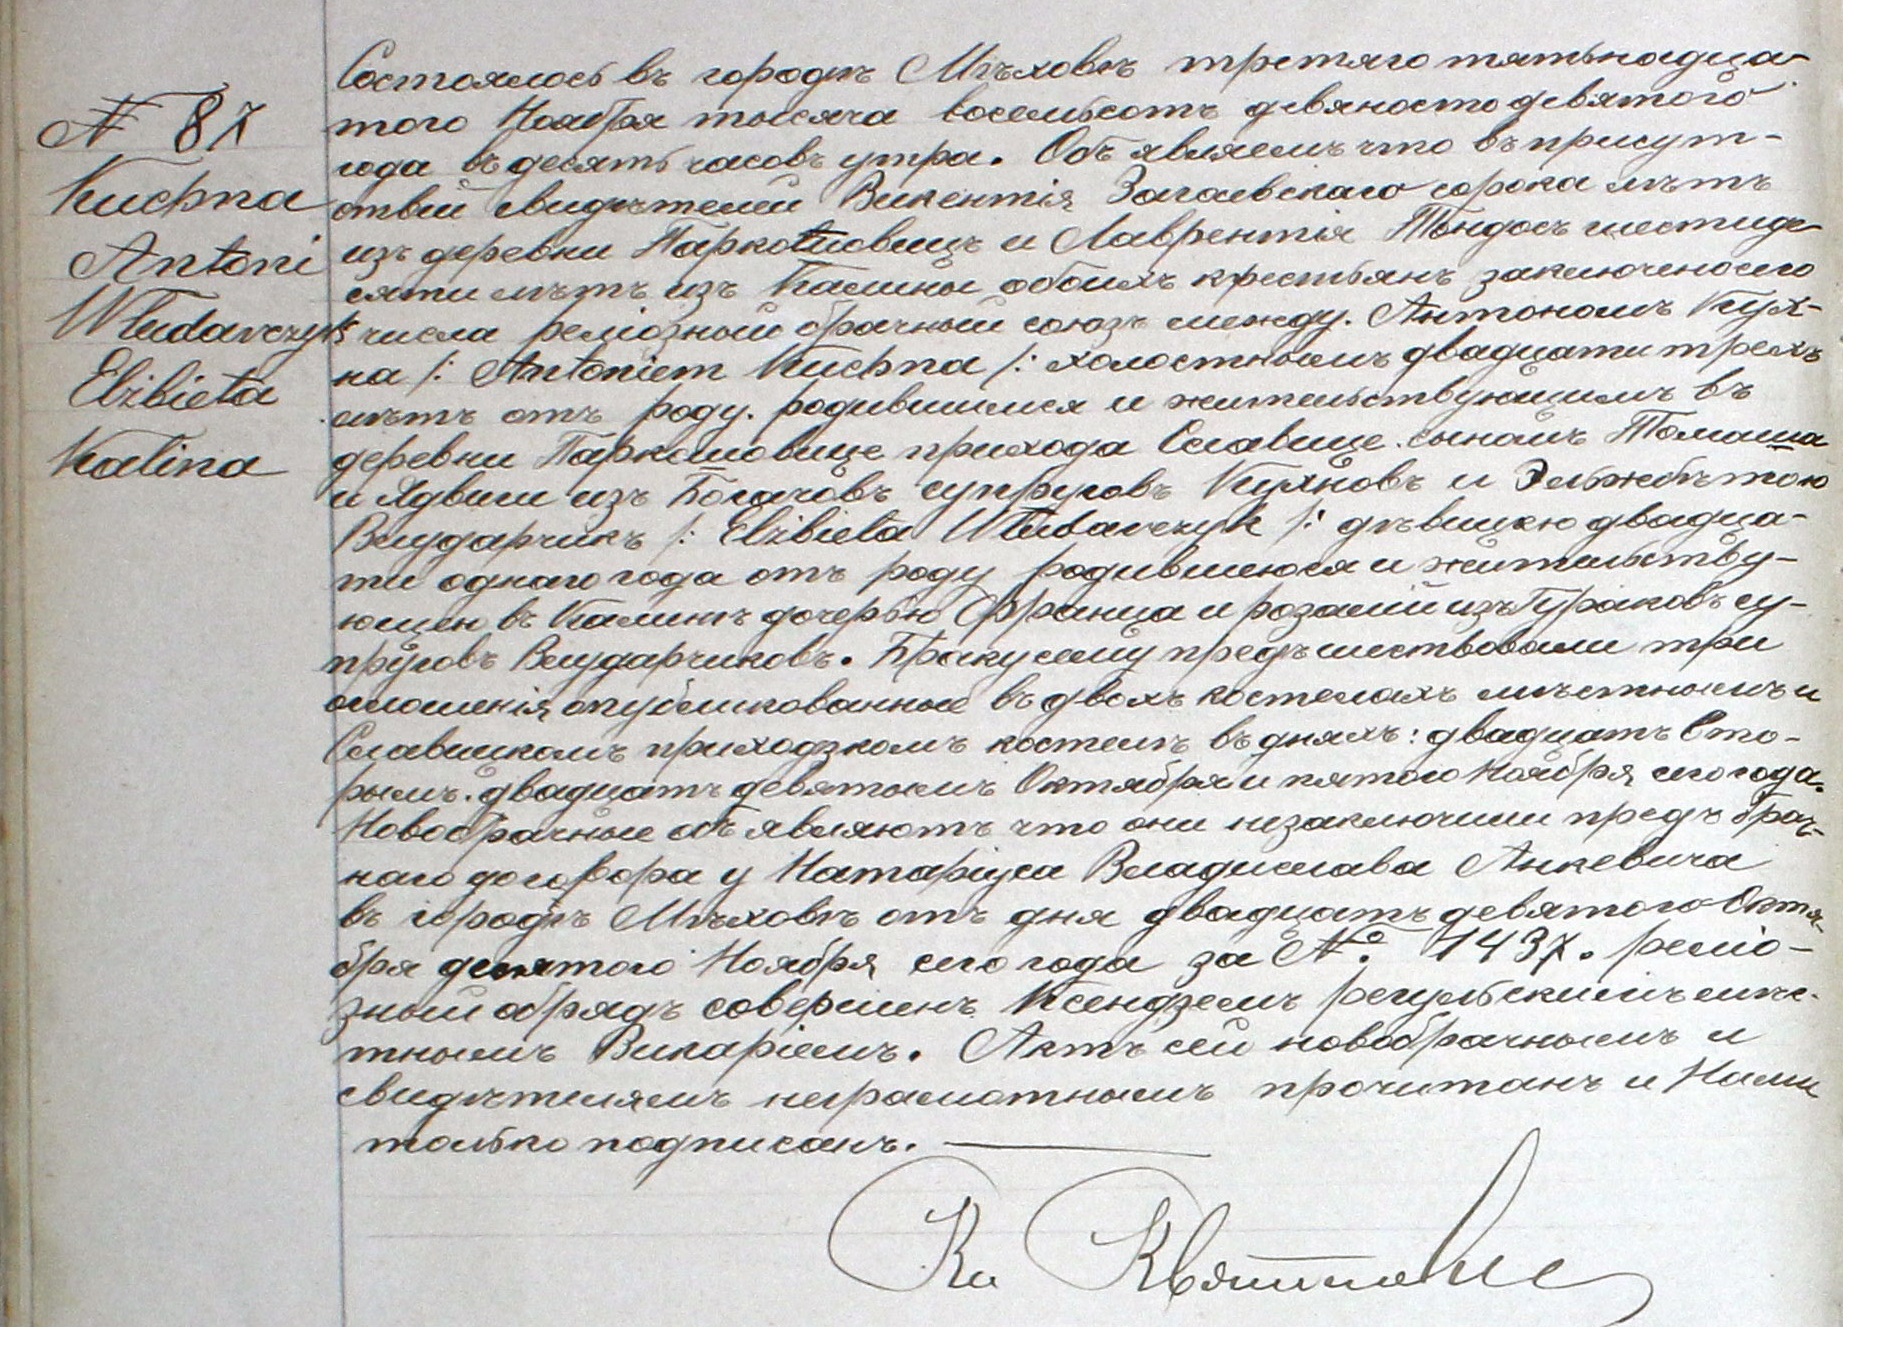 № 87
Kuchna
Antoni
Włudarczyk
Elżbieta
Kalina
Состоялось въ городѣ Мѣховѣ третяго пятьнадца-
того Ноября тысяча восемьсотъ девяносто девятого
года въ десять часовъ утра. Объявляемъ что въ присут-
ствіи свидѣтелей Викентія Загаевскаго сорока лѣтъ
изъ деревни Паркошовицъ и Лаврентія Тындосъ шестиде-
сяти лѣтъ изъ Калины обоихъ крестьянъ заключено сего
числа религіозный брачный союзъ между. Антономъ Кух-
на /: Antoniem Kuchna /: холостнымъ двадцати трехъ
лѣтъ отъ роду. родившимся и жительствующимъ въ
деревни Паркошовице прихода Славице. сыномъ Томаша
и Ядвиги изъ Богачовъ супруговъ Кухновъ и Эльжбѣтою
Влударчикъ /: Elżbieta Włudarczyk /: дѣвицею двадца-
ти одного года отъ роду родившеюся и жительству-
ющей въ Калинѣ дочерью Франца и розаліи изъ Гураковъ су-
пруговъ Влударчиковъ. Браку сему предъшествовали три
оглашенія опубликованные въ двохъ костелахъ мѣстнымъ и
Славицкомъ приходзкомъ костелѣ въ дняхъ: двадцать вто-
рымъ. двадцать девятымъ Октября и пятого Ноября сего года.
Новобрачные объявляютъ что они незаключили предъ брач-
наго договора у Натаріуса Владислава Анкевича
въ городѣ Мѣховѣ отъ дня двадцать девятого Октя-
бря десятого Ноября сего года за №. 1437. религіо-
зный обрядъ совершенъ Ксендземъ регульскимъ мѣс-
тнымъ Викаріемъ. Актъ сей новобрачнымъ и
свидѣтелямъ неграмотнымъ прочитанъ и Нами
только подписанъ.